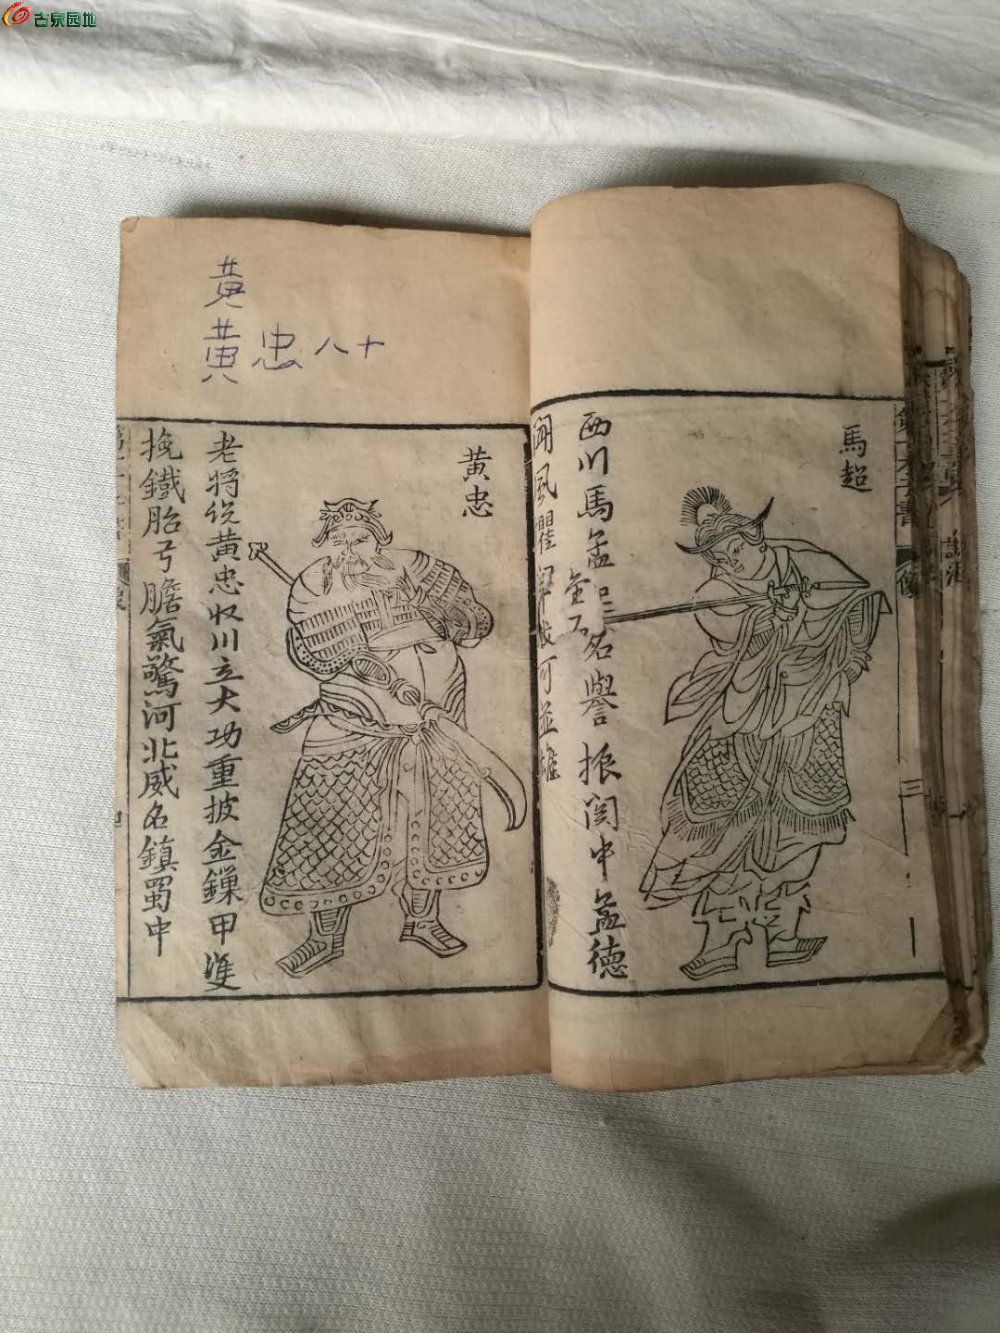 古泉园地
黄
黄忠八十
馬超
西川馬孟起名譽振関中孟德
黄忠
老將说黄忠收川立大功重披金鏁甲雙
挽鐵胎弓膽氣驚河北威名鎮蜀中
三